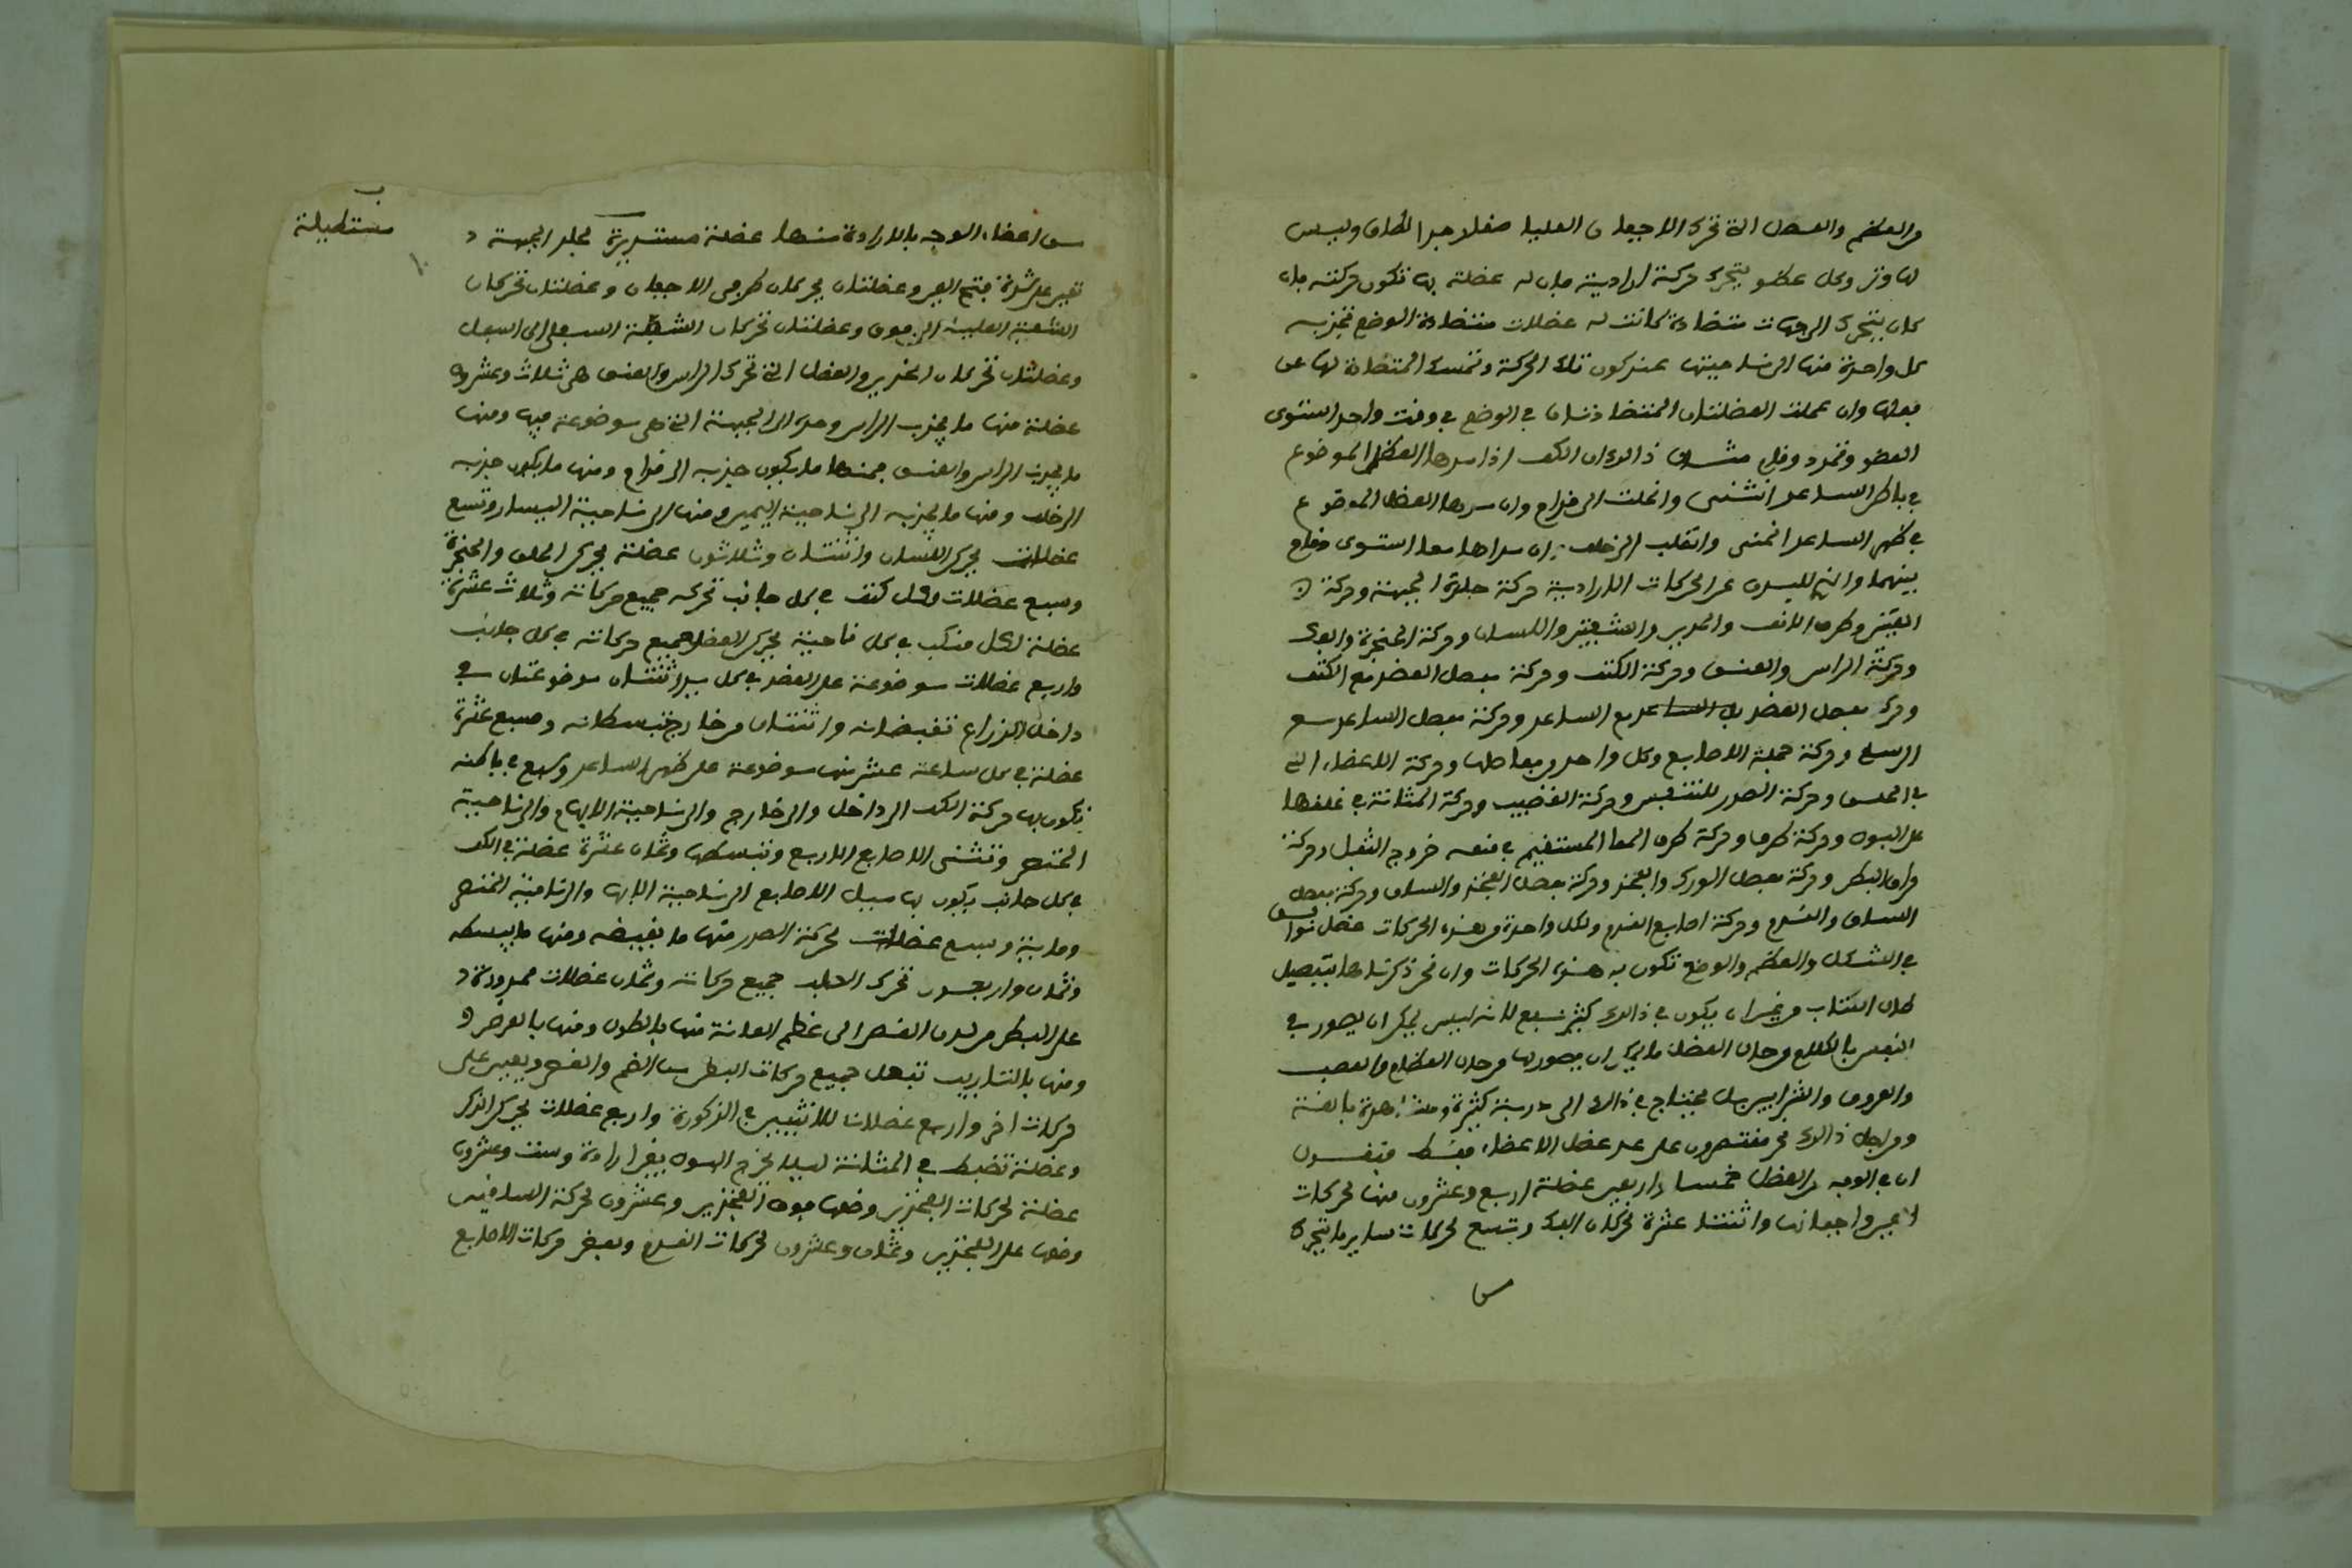 من العظم والعضل التي تحرك الاجفان العليا صغار جدا لطاف وليس
لها وتر وكل عضو يتحرك حركة ارادية فان له عضلة بها تكون حركته فان
كان يتحرك الى جهات متضادة كانت له عضلات متضادة الوضع تجذبه
كل واحدة منها الى ناحيتها عند كون تلك الحركة وتمسك المتضادة لها عن
فعلها وان عملت العضلتان المتضادتان في الوضع في وقت واحد استوى
العضو وتمدد وقام مثال ذالك ان الكف اذا مدها العضل الموضوع
في باطن الساعد انثنى وانقلب الى قدام وان مدها العضل الموضوع
في ظهر الساعد انحنى وانقلب الى خلف وان مداها معا استوى وقام
بينهما والتي للبدن من الحركات الارادية حركة جلدة الجبهة وحركة
العينين وطرف الانف والخدين والشفتين واللسان وحركة الحنجرة والفك
وحركة الراس والعنق وحركة الكتف وحركة مفصل العضد مع الكتف
وحركة مفصل العضد مع الساعد وحركة مفصل الساعد مع
الرسغ وحركة جملة الاصابع وكل واحد من مفاصلها وحركة الاعضاء التي
في الحلق وحركة الصدر للتنفس وحركة القضيب وحركة المثانة في غلقها
على البول وحركة طرف المعا المستقيم في منعه خروج الثفل وحركة
مراق البطن وحركة مفصل الورك والفخذ وحركة مفصل الفخذ والساق وحركة مفصل
الساق والقدم وحركة اصابع القدم ولكل واحدة من هذه الحركات عضل توافق
في الشكل والعظم والوضع تكون به هذه الحركات وان نحن ذكرناها بتفصيل
طال الكتاب من غير ان يكون في ذالك كثير نفع لانه ليس يمكن ان يصور في
النفس بالكلام من حال العضل ما يمكن ان يصور لها من حال العظام والعصب
والعروق والشرايين بل يحتاج في ذالك الى دربة كثيرة ومشاهدة بالغة
ومن اجل ذالك نحن مقتصرون على عدد عضل الاعضاء فقط فنقول
ان في الوجه من العضل خمسا واربعين عضلة اربع وعشرون منها لحركات
العين واجفانها واثنتا عشرة لحركات الفك وتسع لحركات ساير ما يتحرك
من
من اعضاء الوجه بالارادة منها عضلة مستديرة تحت جلد الجبهة
تعين على شدة فتح العين وعضلتان يحركان طرفي الاجفان وعضلتان تحركان
الشفة العليا الى فوق وعضلتان تحركان الشفة السفلى الى اسفل
وعضلتان تحركان الخدين والعضل التي تحرك الراس والعنق هي ثلاث وعشرون
عضلة منها ما يجذب الراس وحده الى الجهة التي هي موضوعة فيها ومنها
ما يجذب الراس والعنق فمنها ما يكون جذبه الى قدام ومنها ما يكون جذبه
الى خلف ومنها ما يجذبه الى ناحية اليمين ومنها الى ناحية اليسار وتسع
عضلات يحرك اللسان واثنتان وثلاثون عضلة يحرك الحلق والحنجرة
وسبع عضلات لكل كتف في كل جانب تحركه جميع حركاته وثلاث عشرة
عضلة لكل منكب في كل ناحية يحرك العضد جميع حركاته في كل جانب
واربع عضلات موضوعة على العضد في كل يد اثنتان موضوعتان في
داخل الذراع تقبضانه واثنتان من خارج تبسطانه وسبع عشرة
عضلة في كل ساعد عشر منها موضوعة على ظهر الساعد وسبع في باطنه
تكون بها حركة الكف الى داخل والى خارج والى ناحية الابهام والى ناحية
الخنصر وتثني الاصابع الاربع وتبسطها وثمان عشرة عضلة في الكف
في كل جانب يكون بها ميل الاصابع الى ناحية الابهام والى ناحية الخنصر
وماية وسبع عضلات لحركة الصدر منها ما يقبضه ومنها ما يبسطه
وثمان واربعون تحرك الصلب جميع حركاته وثمان عضلات ممدودة
على البطن من لدن القص الى عظم العانة منها بالطول ومنها بالعرض
ومنها بالتاريب تفعل جميع حركات البطن من الضم والعصر ويعين على
حركات اخر واربع عضلات للانثيين في الذكورة واربع عضلات يحرك الذكر
وعضلة تضبط فم المثانة ليلا يخرج البول بغير ارادة وست وعشرون
عضلة لحركات الفخذين وضعها فوق الفخذين وعشرون لحركة الساقين
وضعها على الفخذين وثمان وعشرون لحركات القدم وبعض حركات الاصابع
مستطيلة